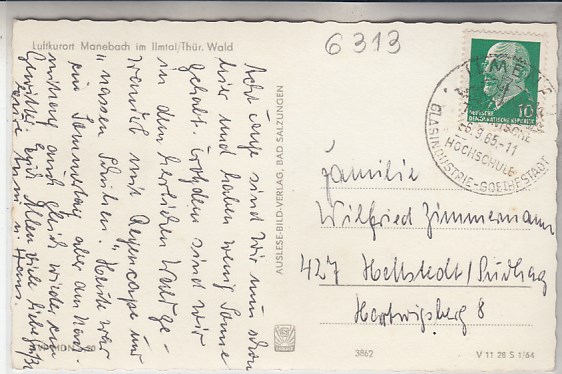 Luftkurort Manebach im Ilmtal/Thür. Wald
6313
Acht Tage sind wir nun schon
hier und haben wenig Sonne
gehabt. Trotzdem sind wir
in dem herrlichen Wald ge-
wandert mit Regencape und
"nassen Schuhen. Heute war
ein Sonnentag aber am Nach-
mittag auch gleich wieder ein
Gewitter. Euch Allen viele liebe Grüße
Eure u. Hans.
AUSLESE-BILD-VERLAG, BAD SALZUNGEN
10
DEUTSCHE
DEMOKRATISCHE REPUBLIK
ILMENAU
TECHNISCHE
26.9.65.-11
HOCHSCHULE
GLASINDUSTRIE-GOETHESTADT
Familie
Wilfried Zimmermann
427 Hettstedt/Südhag
Hartwigsberg 8
3862
V 11 28 S 1/64